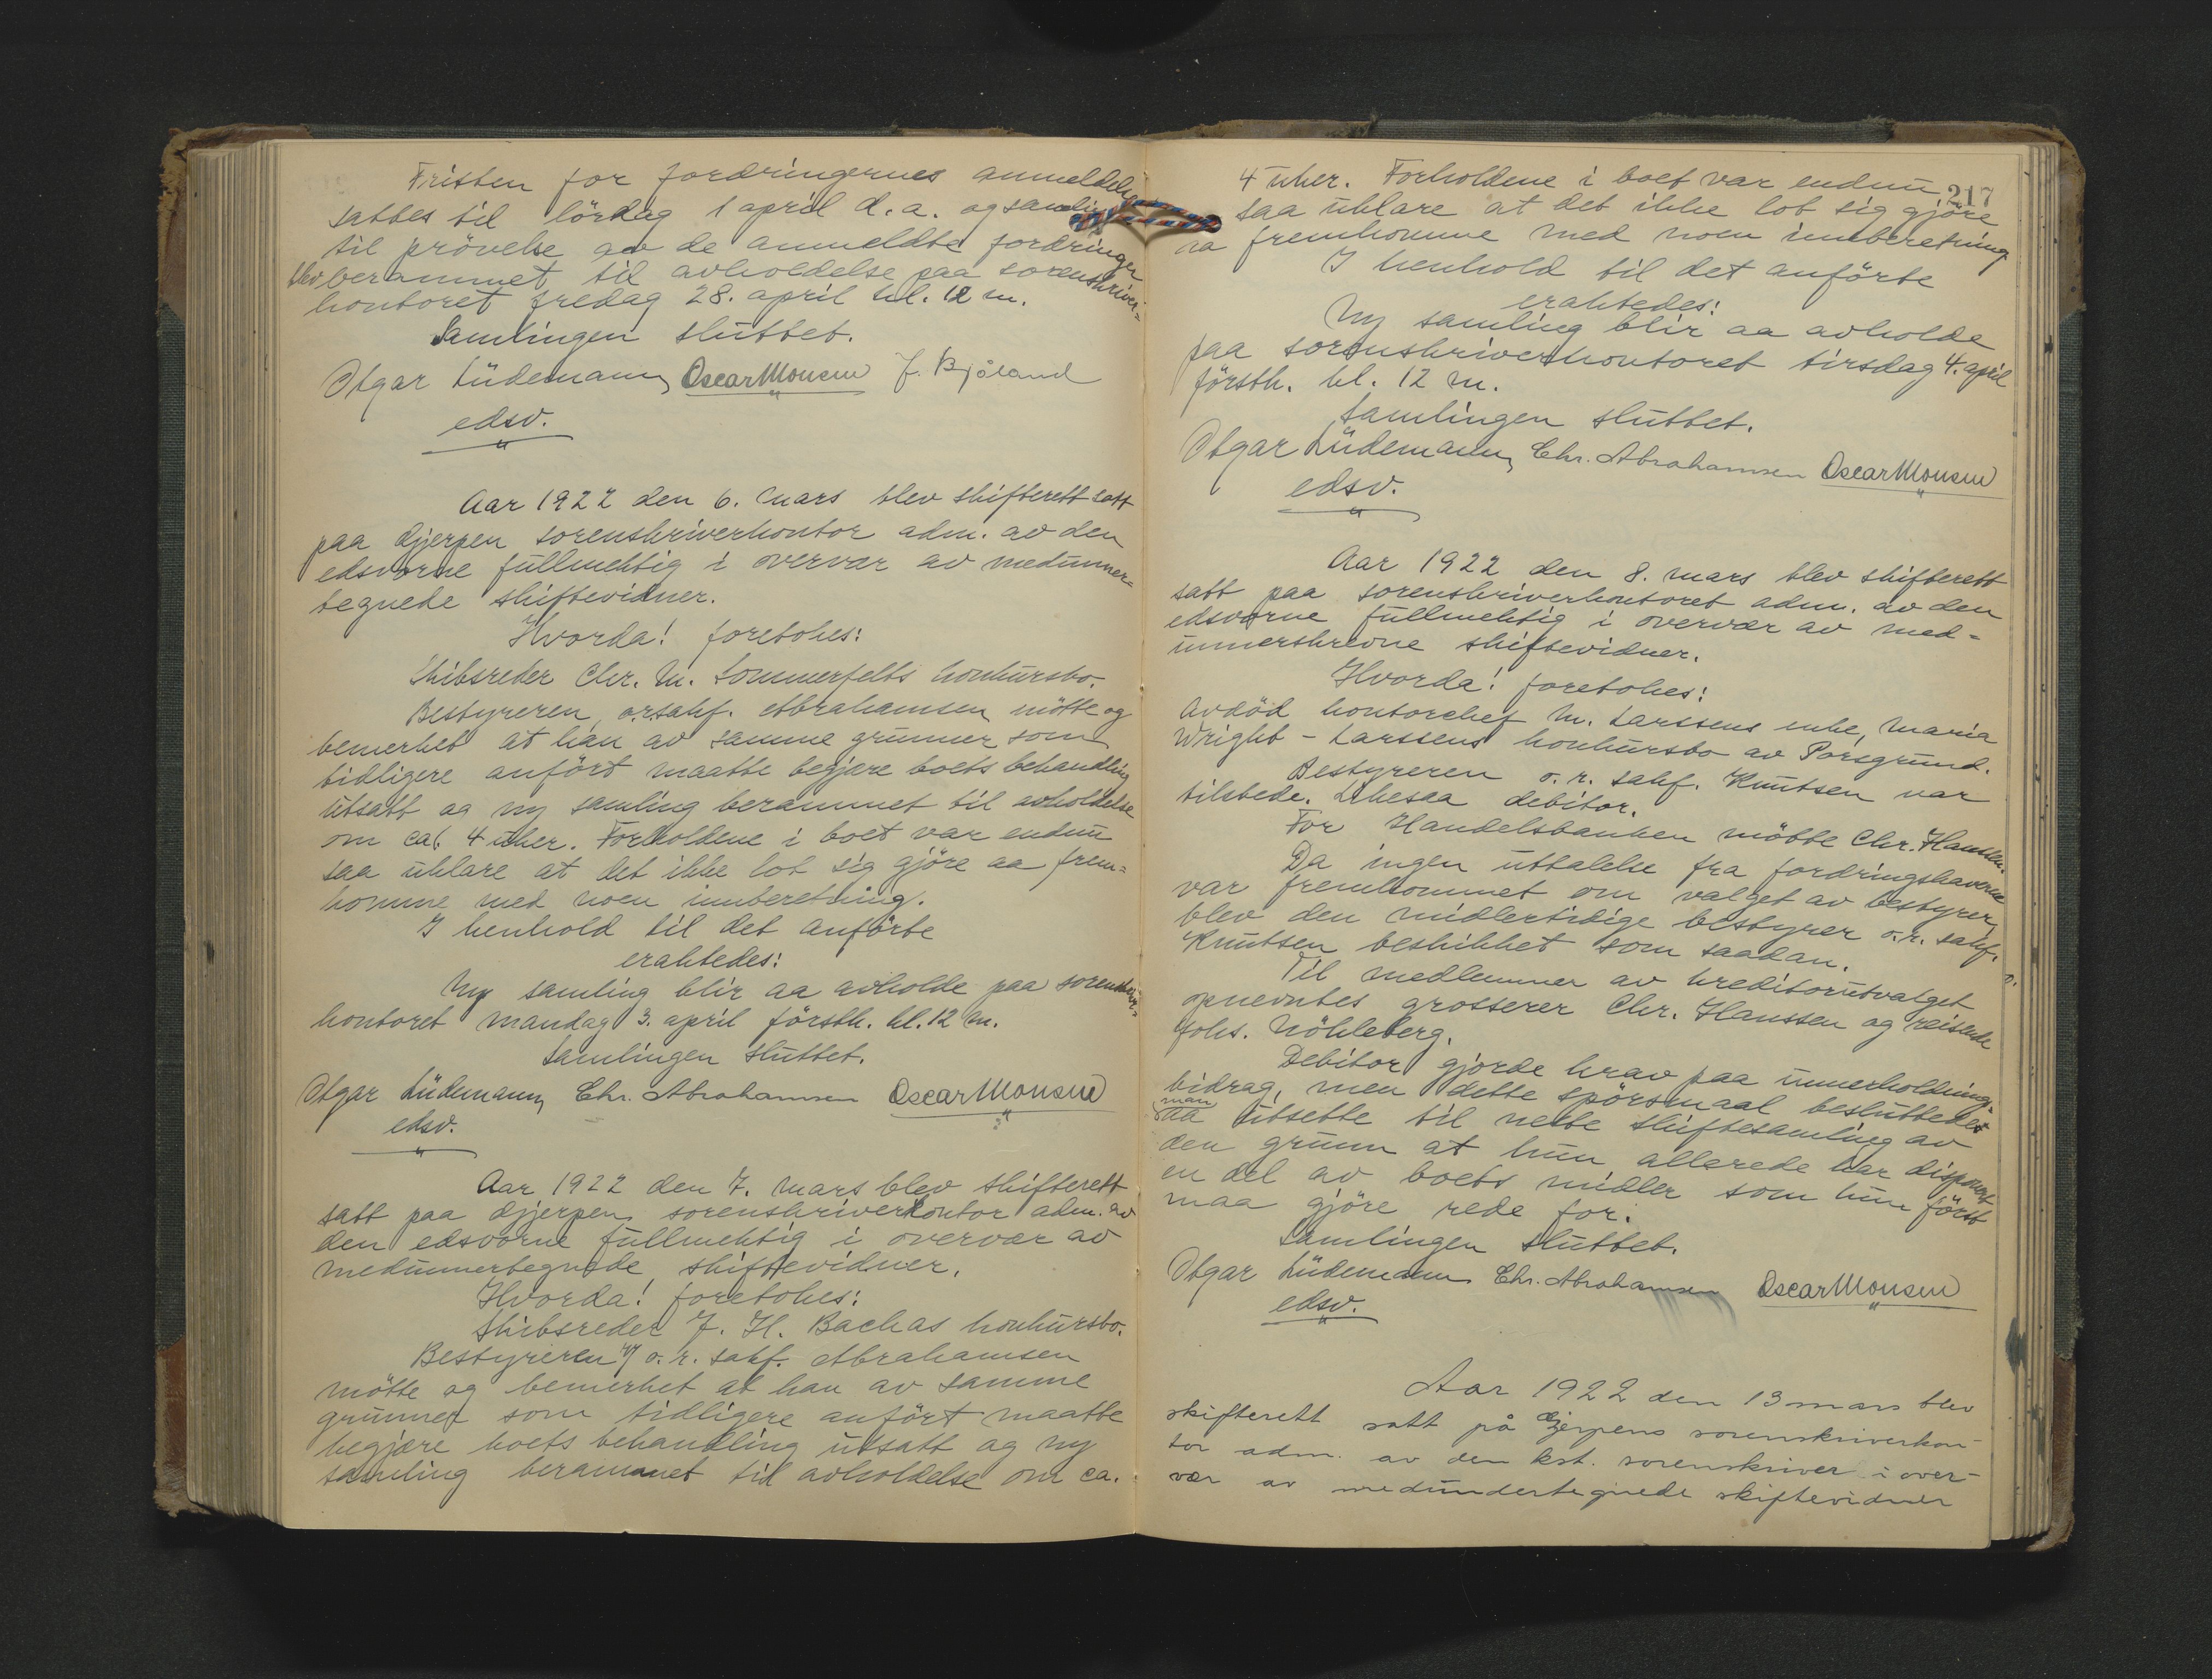 Fristen for fordringernes anmeldelse
sattes til lördag 1 april d.a. og samling
til prövelse av de anmeldte fordringer
blev berammet til avholdelse paa sorenskriver-
kontoret fredag 28. april kl. 12 m.
Samlingen sluttet.
Otgar Lüdemann Oscar Monsen J. Bjåland
edsv.
Aar 1922 den 6. mars blev skifterett satt
paa Gjerpen sorenskriverkontor adm. av den
edsvorne fullmektig i overvær av medunner-
tegnede skiftevidner.
Hvorda! foretokes:
Skibsreder Chr. M. Sommerfelts konkursbo.
Bestyreren, o.r.sakf. Abrahamsen mötte og
bemerket at han av samme grunner som
tidligere anfört maatte begjære boets behandling
utsatt og ny samling berammet til avholdelse
om ca. 4 uker. Forholdene i boet var endnu
saa uklare at det ikke lot sig gjöre aa frem-
komme med noen innberetning.
I henhold til det anförte
eraktedes:
Ny samling blir aa avholde paa sorenskriver-
kontoret mandag 3. april förstk. kl. 12 m.
Samlingen sluttet.
Otgar Lüdemann Chr. Abrahamsen Oscar Monsen
edsv.
Aar 1922 den 7. mars blev skifterett
satt paa Gjerpen sorenskriverkontor adm. av
den edsvorne fullmektig i overvær av
medunnertegnede skiftevidner.
Hvorda! foretokes:
Skibsreder J. H. Backas konkursbo.
Bestyreren o.r. sakf. Abrahamsen
mötte og bemerket at han av samme
grunner som tidligere anfört maatte
begjære boets behandling utsatt og ny
samling berammet til avholdelse om ca.
217
4 uker. Forholdene i boet var endnu
saa uklare at det ikke lot sig gjöre
aa fremkomme med noen innberetning
I henhold til det anförte
eraktedes:
Ny samling blir aa avholde
paa sorenskriverkontoret tirsdag 4. april
förstk. kl. 12 m.
Samlingen sluttet.
Otgar Lüdemann Chr. Abrahamsen Oscar Monsen
edsv.
Aar 1922 den 8. mars blev skifterett
satt paa sorenskriverkontoret adm. av den
edsvorne fullmektig i overvær av med-
unnerskrevne skiftevidner.
Hvorda! foretokes:
Avdöd kontorchef M. Larssens enke, Maria
Wright-Larssens konkursbo av Porsgrund.
Bestyreren o.r. sakf. Knutsen var
tilstede. Likesaa debitor.
For Handelsbanken mötte Chr. Hanssen.
Da ingen uttalelse fra fordringshaverne
var fremkommet om valget av bestyrer,
blev den midlertidige bestyrer o.r. sakf.
Knutsen beskikket som saadan.
Til medlemmer av kreditorutvalget
opnevntes grosserer Chr. Hanssen og reisende
Johs. Nökleberg.
Debitor gjorde krav paa unnerholdnings-
bidrag, men dette spörsmaal besluttedes
man aa utsette til neste skiftesamling av
den grunn at hun allerede har disponert
en del av boets midler som hun först
maa gjöre rede for.
Samlingen sluttet.
Otgar Lüdemann Chr. Abrahamsen Oscar Monsen
edsv.
Aar 1922 den 13 mars blev
skifterett satt på Gjerpens sorenskriverkon-
tor adm. av den kst. sorenskriver i over-
vær av medundertegnede skiftevidner